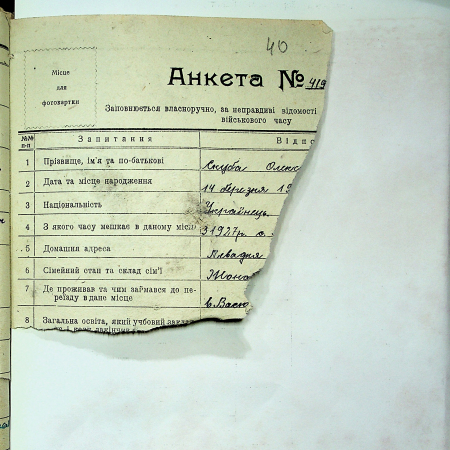 40
Місце
для
фотокартки
Анкета № 419
Заповнюється власноручно, за неправдиві відомості
військового часу
№№
п-п
Запитання
Відпо
1 Прізвище, ім'я та по-батькові Скуба Олекс
2 Дата та місце народження 14 березня 19
3 Національність Українець
4 З якого часу мешкає в даному місці З 1927р. с.
5 Домашня адреса
6 Сімейний стан та склад сім'ї Жона
7 Де проживав та чим займався до пе-
реїзду в дане місце в. Васи
8 Загальна освіта, який учбовий закла